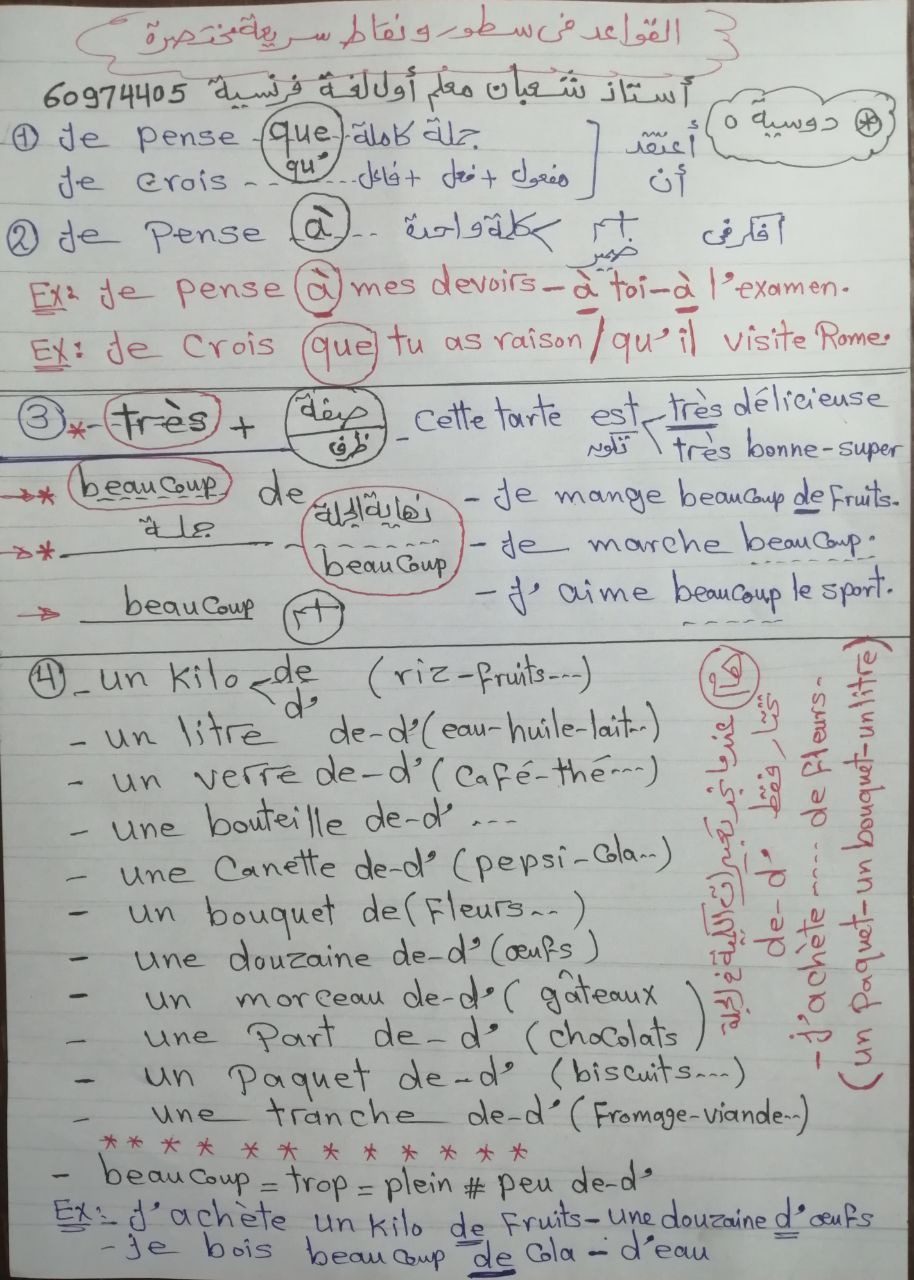 القواعد فى سطور ونقاط سريعة مختصرة
أستاذ شعبان معلم أول لغة فرنسية 60974405
* دوسية 5
① Je pense que جملة كاملة أعتقد
qu'
Je Crois ... فاعل + فعل + مفعول أن
② Je pense à .. كلمة واحدة اسم أفكر فى
ضمير
Ex: Je pense à mes devoirs - à toi - à l'examen.
Ex: Je Crois que tu as raison / qu'il visite Rome.
③ * - très + صفة - Cette tarte est très délicieuse
ظرف très bonne - super
* beaucoup de - Je mange beaucoup de Fruits.
* جملة نهاية الجملة beaucoup - Je marche beaucoup.
beaucoup اسم - J'aime beaucoup le sport.
④ - un kilo de (riz - fruits ...)
d'
- un litre de - d' (eau - huile - lait ..)
- un verre de - d' (Café - thé ...)
- une bouteille de - d' ...
- une Canette de - d' (pepsi - Cola ..)
- un bouquet de (Fleurs ..)
- une douzaine de - d' (œufs)
- un morceau de - d' (gâteaux
- une Part de - d' (chocolats)
- un Paquet de - d' (biscuits ...)
- une tranche de - d' (Fromage - viande ..)
هام
عندما نجد تعبيرات الكمية فى الجملة
نختار فقط de - d'
- J'achète ..... de fleurs.
(un paquet - un bouquet - un litre)
* * * * * * * * * * * *
- beaucoup = trop = plein # peu de - d'
Ex: - J'achète un kilo de Fruits - une douzaine d'œufs
- Je bois beaucoup de Cola - d'eau